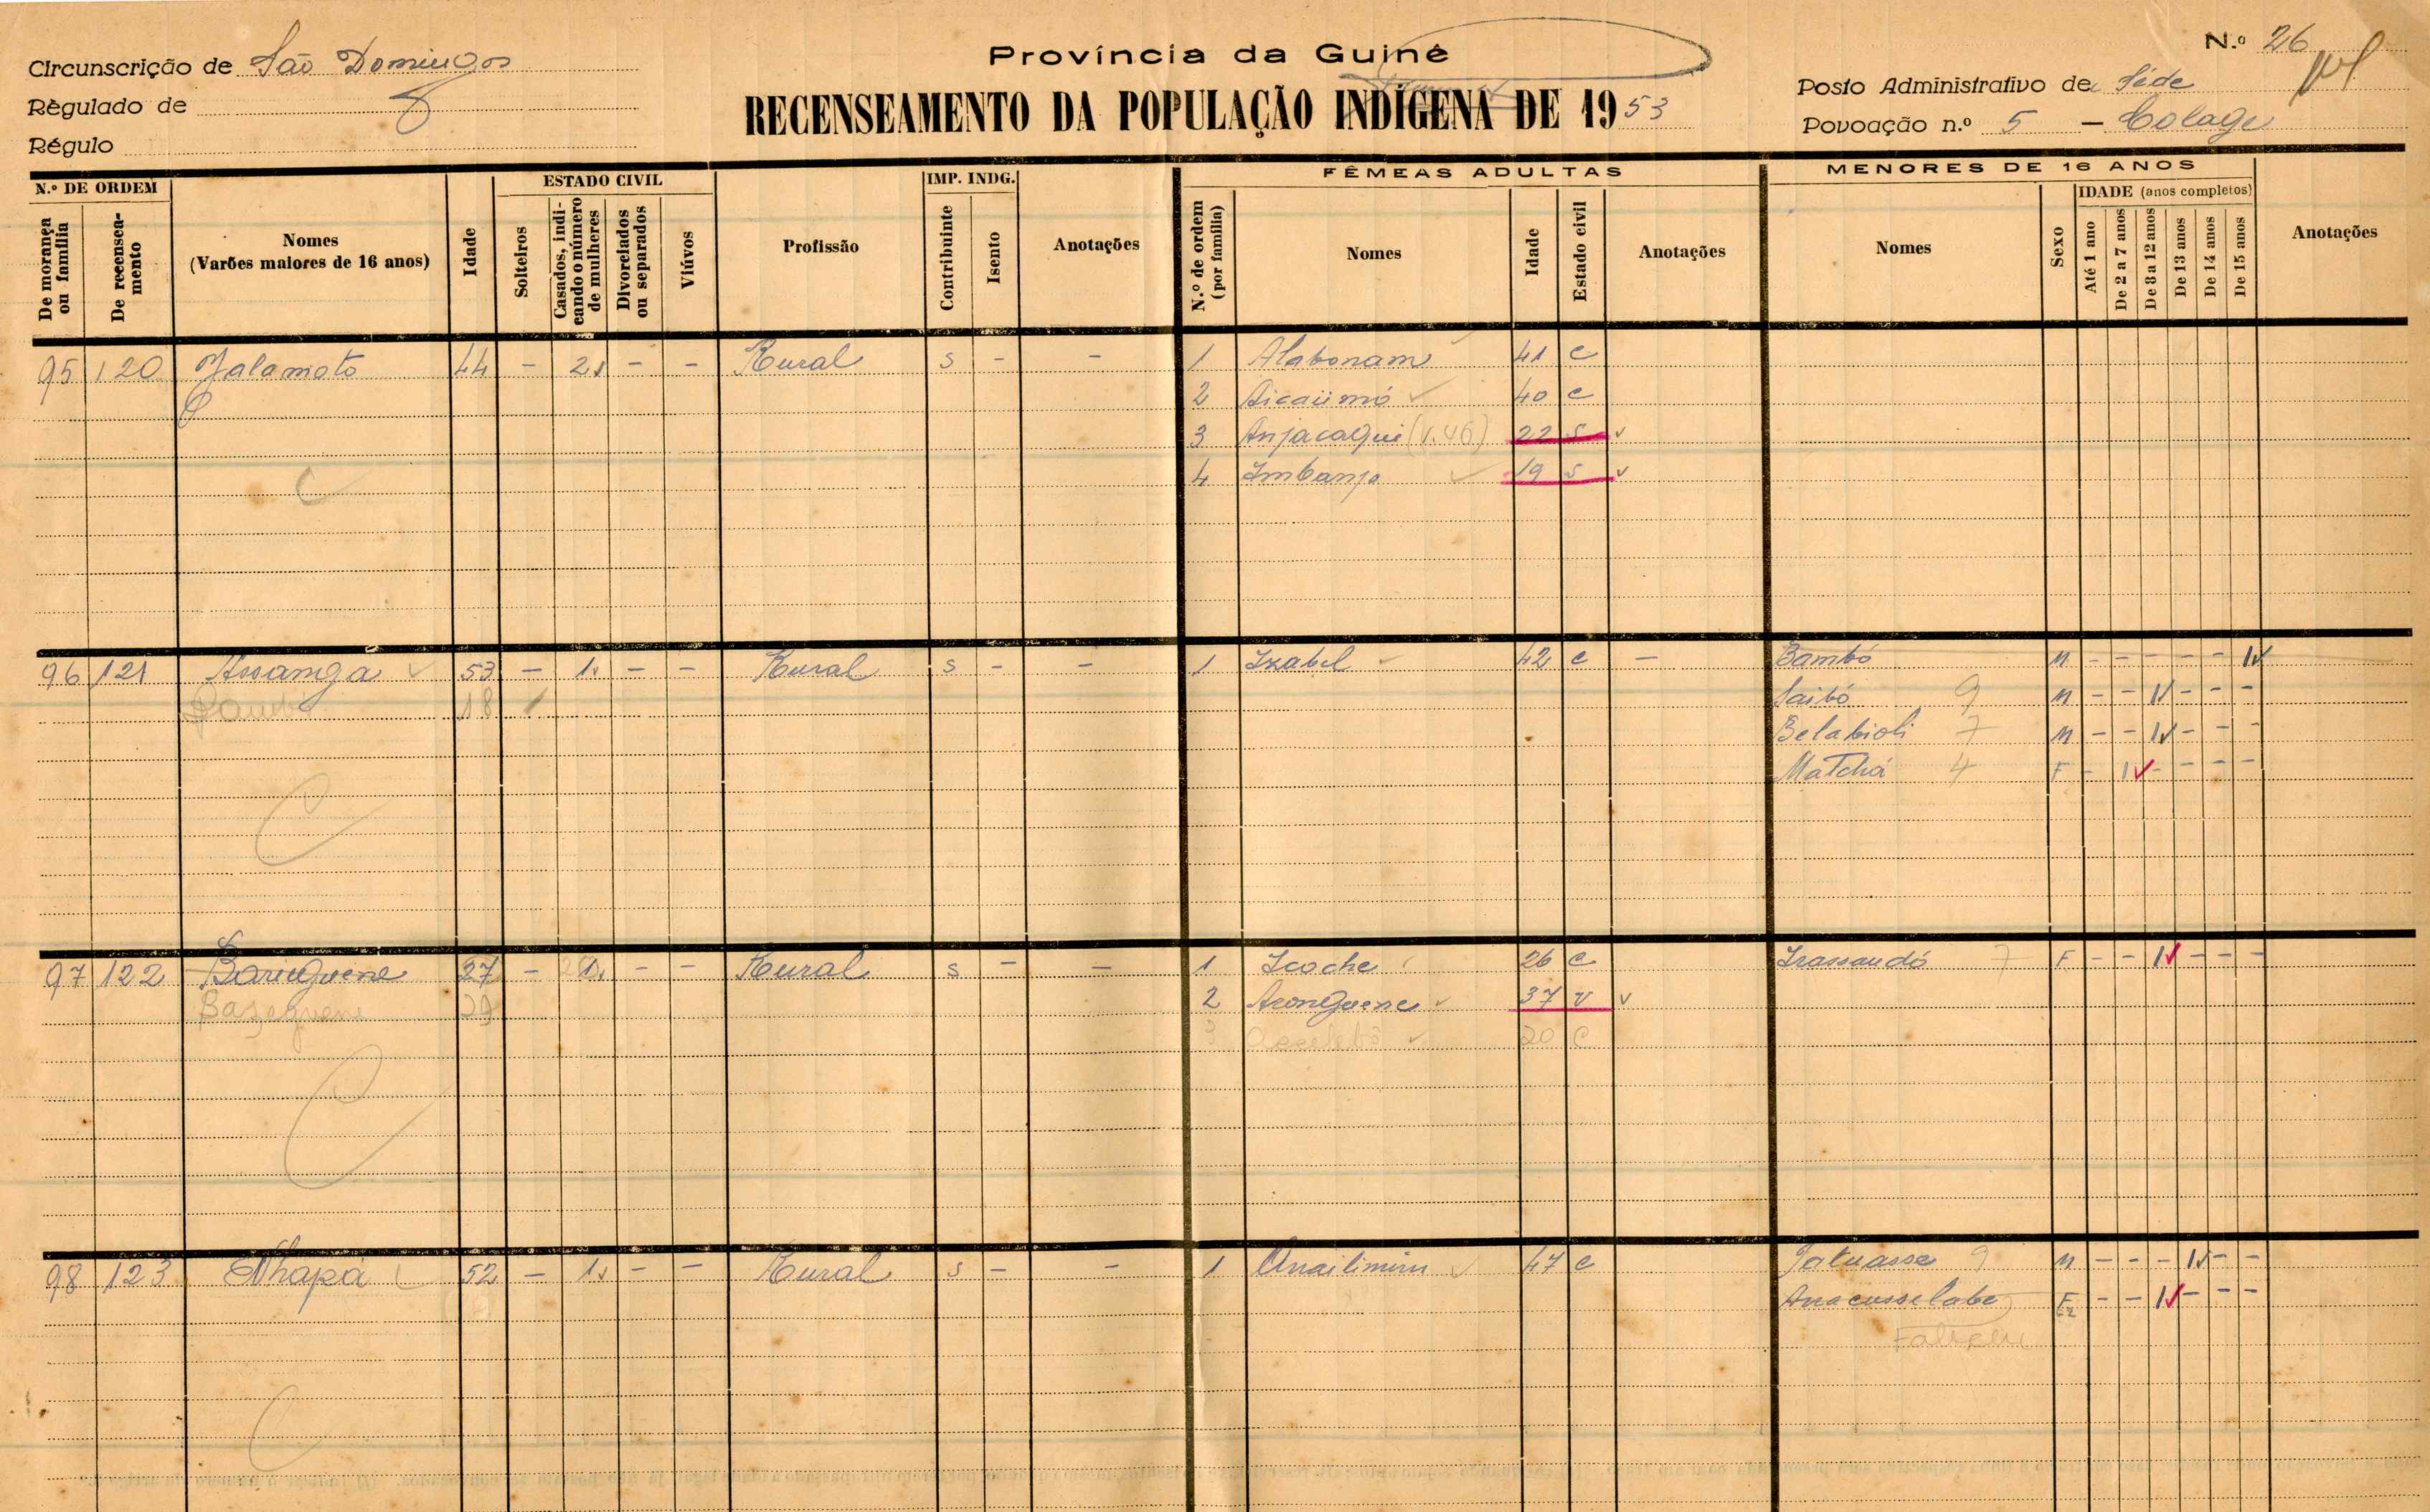 Província da Guiné
N.º 26
Circunscrição de São Domingos
Règulado de
Régulo
RECENSEAMENTO DA POPULAÇÃO INDÍGENA DE 1953
Posto Administrativo de Séde
Povoação n.º 5 - Colage
N.º DE ORDEM
De morança ou família
De recenseamento
Nomes
(Varões maiores de 16 anos)
Idade
ESTADO CIVIL
Solteiros
Casados, indicando o número de mulheres
Divorciados ou separados
Viúvos
Profissão
IMP. INDG.
Contribuinte
Isento
Anotações
FÊMEAS ADULTAS
N.º de ordem (por família)
Nomes
Idade
Estado civil
Anotações
MENORES DE 16 ANOS
Nomes
Sexo
IDADE (anos completos)
Até 1 ano
De 2 a 7 anos
De 8 a 12 anos
De 13 anos
De 14 anos
De 15 anos
Anotações
95 120 Jalamoto 44 - 2 - - Rural s - - 1 Alabonam 41 c
2 Aicaiimó 40 c
3 Anjacaqui (V.46) 22 s
4 Imbanja 19 s
96 121 Assanga 53 - 1 - - Rural s - - 1 Izabel 42 c - Bambó M - - - - - 1
Bambó 18 1 Saibó 9 M - - 1 - - -
Belabioli 7 M - - 1 - - -
Matchá 4 F - 1 - - - -
97 122 Bariuguene 27 - 1 - - Rural s - - 1 Icoche 26 c Irassaudó 7 F - - 1 - - -
Bazeguene 29 2 Aronguene 37 v
3 20 c
98 123 Nhapá 52 - 1 - - Rural s - - 1 Anailimim 47 c Jatuasse 9 M - - - 1 - -
Anacusselabe F - - 1 - - -